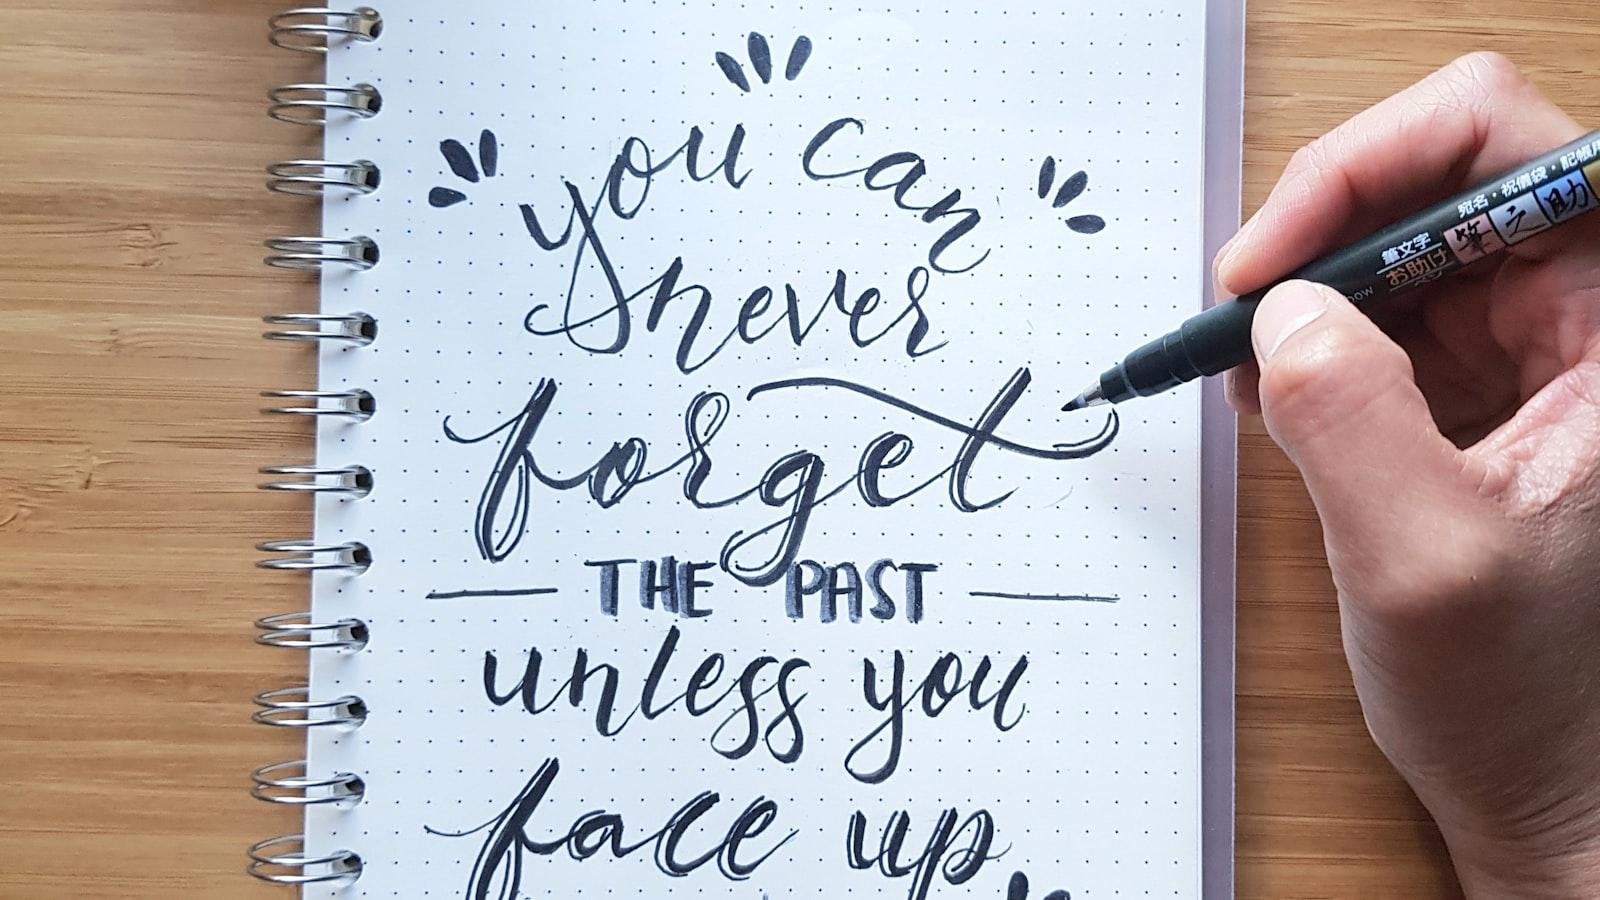 you can
never
forget
THE PAST
unless you
face up
宛名・祝儀袋・記帳用
筆文字
お助け
筆之助